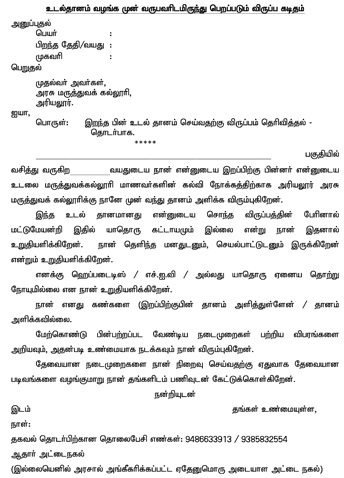 உடல்தானம் வழங்க முன் வருபவரிடமிருந்து பெறப்படும் விருப்ப கடிதம்
அனுப்புதல்
பெயர் :
பிறந்த தேதி/வயது :
முகவரி :
பெறுதல்
முதல்வர் அவர்கள்,
அரசு மருத்துவக் கல்லூரி,
அரியலூர்.
ஐயா,
பொருள்: இறந்த பின் உடல் தானம் செய்வதற்கு விருப்பம் தெரிவித்தல் -
தொடர்பாக.
*****
பகுதியில்
வசித்து வருகிற வயதுடைய நான் என்னுடைய இறப்பிற்கு பின்னர் என்னுடைய
உடலை மருத்துவக்கல்லூரி மாணவர்களின் கல்வி நோக்கத்திற்காக அரியலூர் அரசு
மருத்துவக் கல்லூரிக்கு நானே முன் வந்து தானம் அளிக்க விரும்புகிறேன்.
இந்த உடல் தானமானது என்னுடைய சொந்த விருப்பத்தின் பேரினால்
மட்டுமேயன்றி இதில் யாதொரு கட்டாயமும் இல்லை என்று நான் இதனால்
உறுதியளிக்கிறேன். நான் தெளிந்த மனதுடனும், செயல்பாட்டுடனும் இருக்கிறேன்
என்றும் உறுதியளிக்கிறேன்.
எனக்கு ஹெப்படைடிஸ் / எச்.ஐ.வி / அல்லது யாதொரு ஏனைய தொற்று
நோயுமில்லை என நான் உறுதியளிக்கிறேன்.
நான் எனது கண்களை (இறப்பிற்குபின் தானம் அளித்துள்ளேன் / தானம்
அளிக்கவில்லை.
மேற்கொண்டு பின்பற்றப்பட வேண்டிய நடைமுறைகள் பற்றிய விபரங்களை
அறியவும், அதன்படி உண்மையாக நடக்கவும் நான் விரும்புகிறேன்.
தேவையான நடைமுறைகளை நான் நிறைவு செய்வதற்கு ஏதுவாக தேவையான
படிவங்களை வழங்குமாறு நான் தங்களிடம் பணிவுடன் கேட்டுக்கொள்கிறேன்.
நன்றியுடன்
இடம் தங்கள் உண்மையுள்ள,
நாள்:
தகவல் தொடர்பிற்கான தொலைபேசி எண்கள்: 9486633913 / 9385832554
ஆதார் அட்டைநகல்
(இல்லையெனில் அரசால் அங்கீகரிக்கப்பட்ட ஏதேனுமொரு அடையாள அட்டை நகல்)